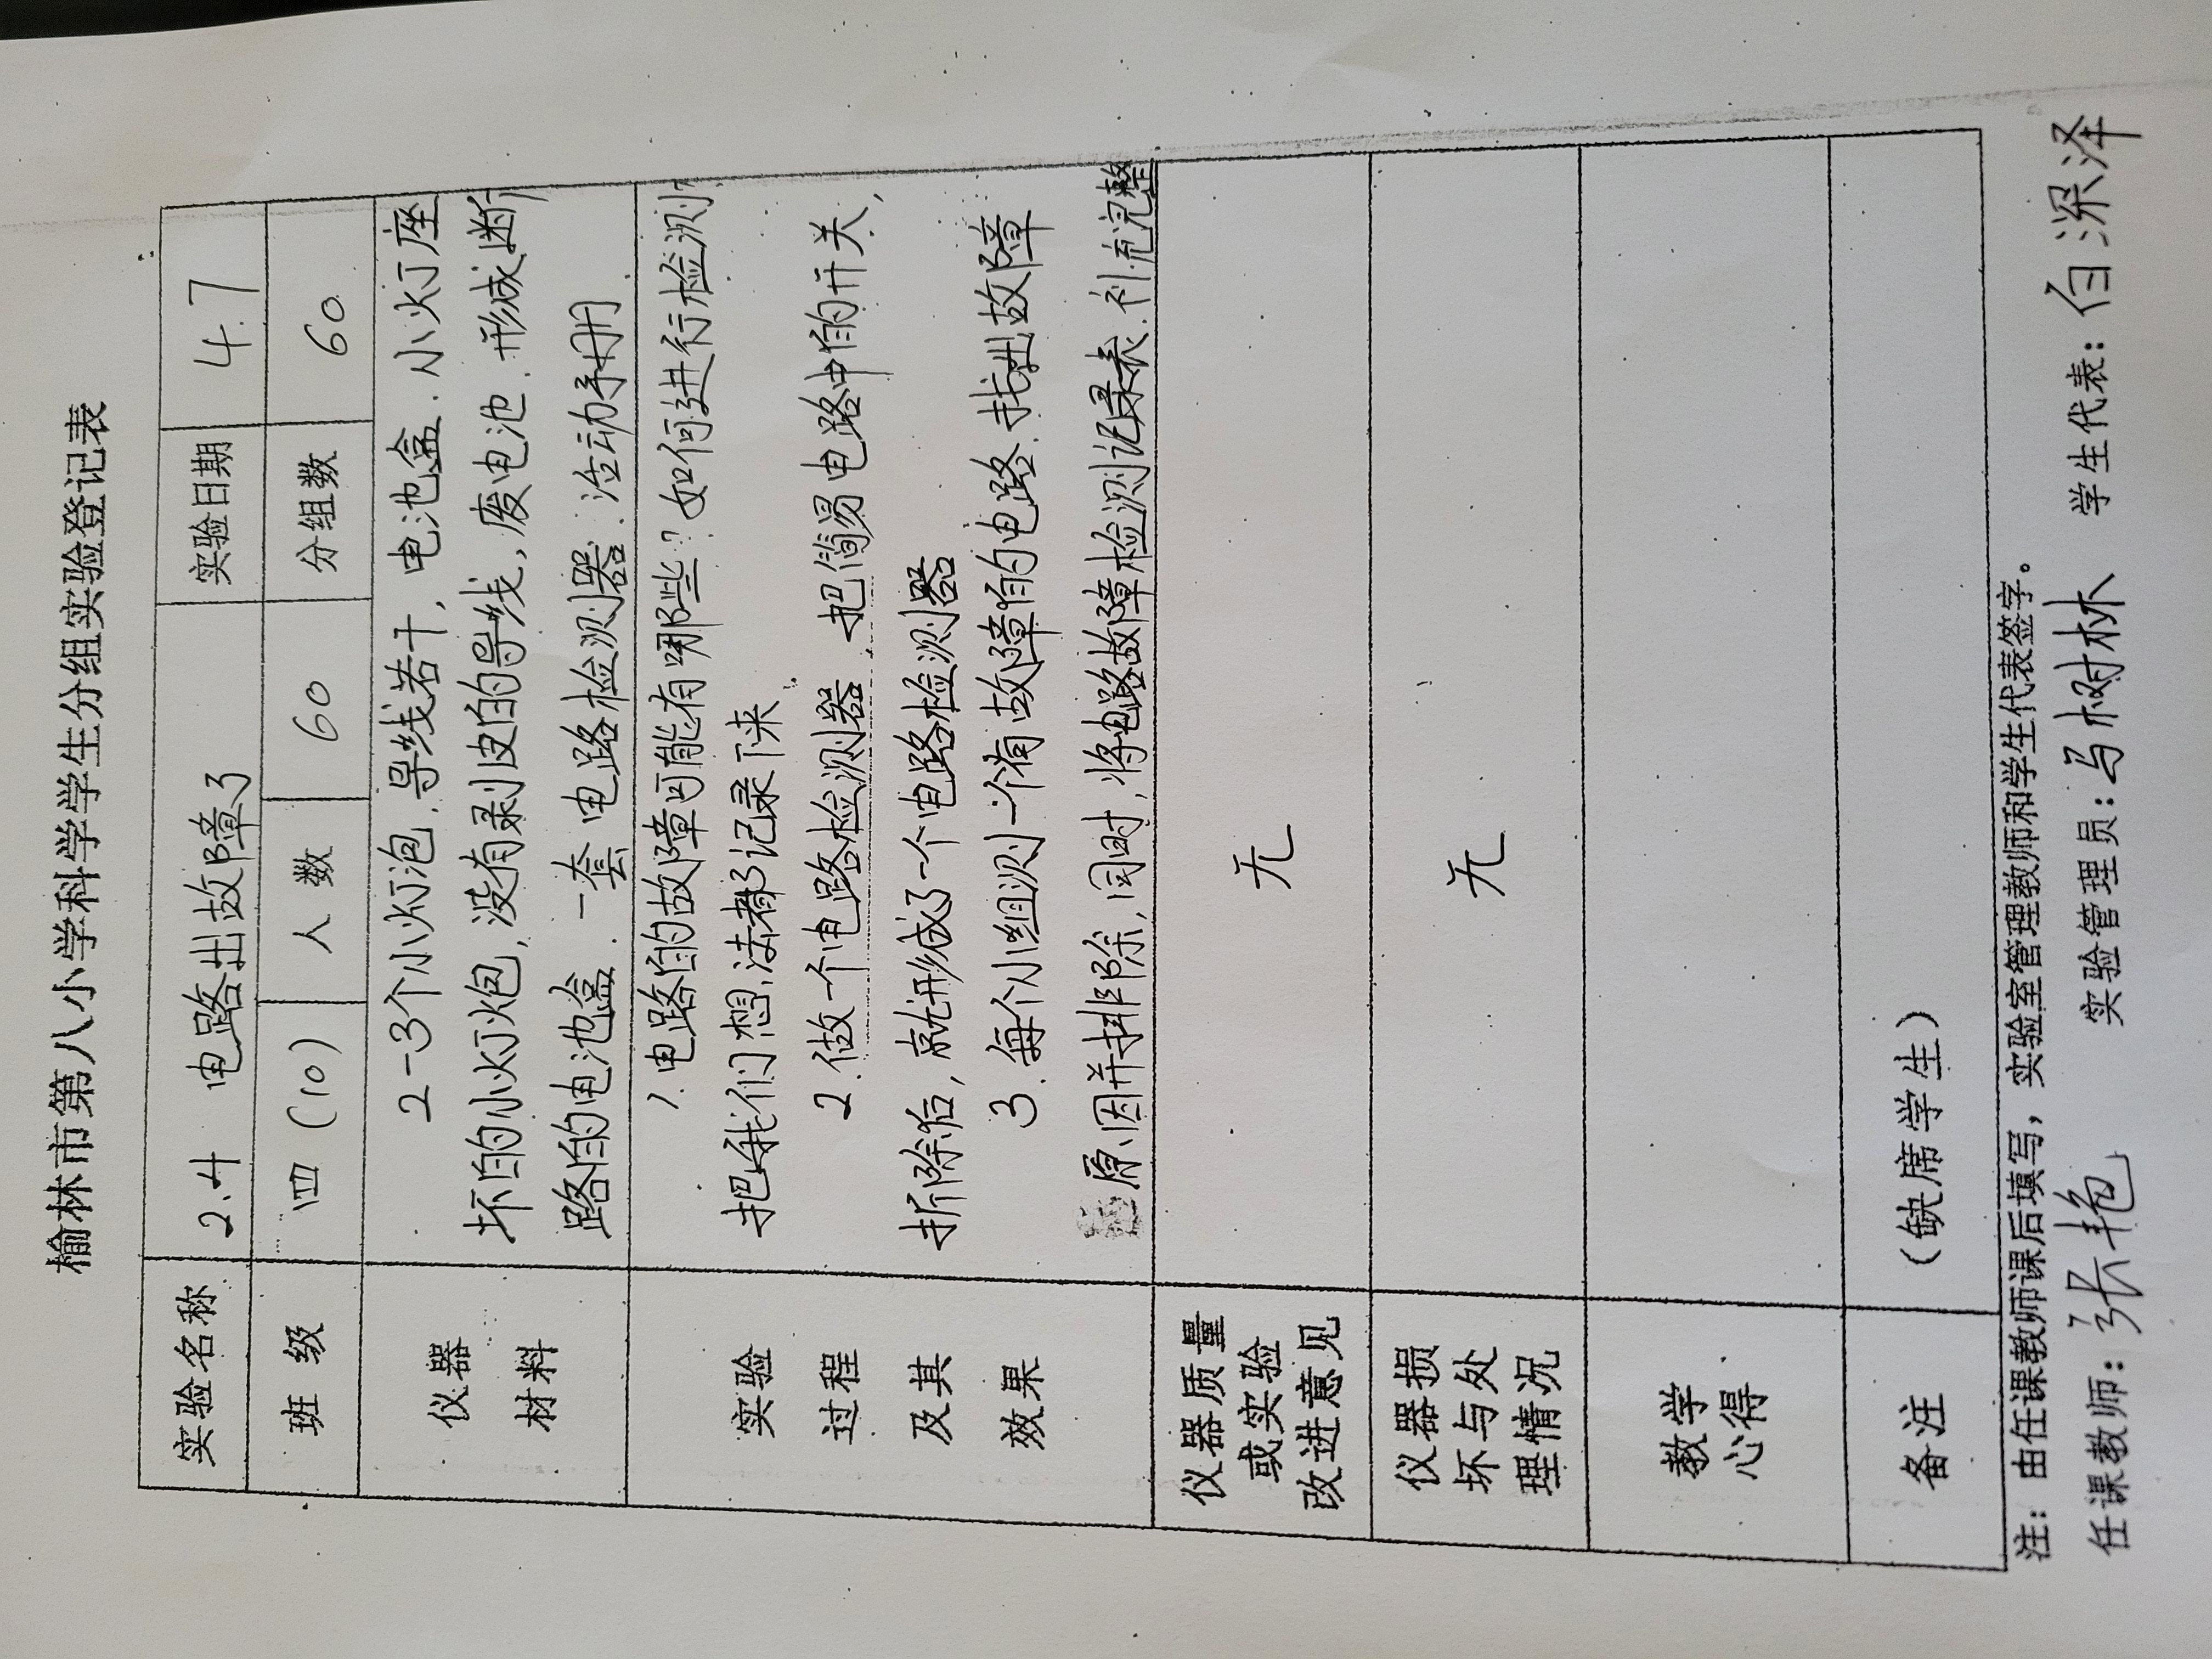 榆林市第八小学科学学生分组实验登记表
实验名称 2.4 电路出故障了 实验日期 4.7
班级 四(10) 人数 60 分组数 60
仪器
材料
2-3个小灯泡.导线若干,电池盒.小灯座
坏的小灯炮,没有剥皮的导线,废电池.形成断
路的电池盒.一套电路检测器.活动手册
实验
过程
及其
效果
1.电路的故障可能有哪些?如何进行检测?
把我们想法都记录下来.
2.做一个电路检测器.把简易电路中的开关,
折除后,就形成了一个电路检测器
3.每个小组测一个有故障的电路.找出故障
原因并排除,同时,将电路故障检测记录表.补充完整
仪器质量
或实验
改进意见
无
仪器损
坏与处
理情况
无
教学
心得
备注
(缺席学生)
注:由任课教师课后填写,实验室管理教师和学生代表签字。
任课教师:张艳 实验管理员:马树林 学生代表:白深泽